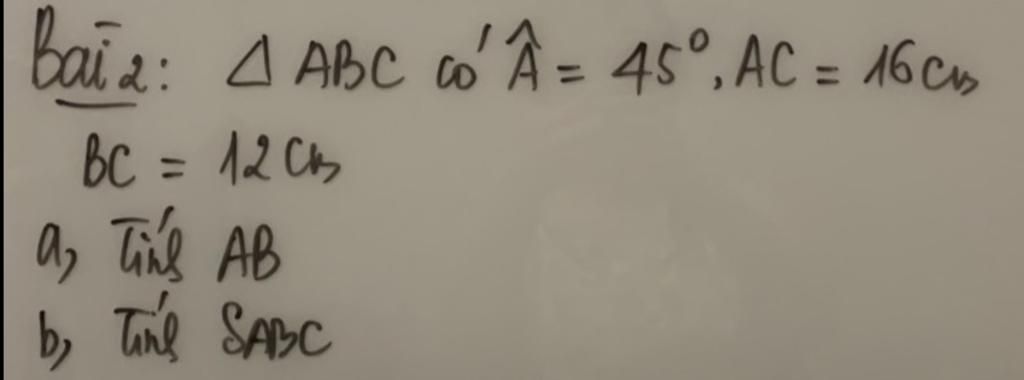 Bài 2: Δ ABC có Â = 45°, AC = 16 cm
BC = 12 cm
a, Tính AB
b, Tính SABC